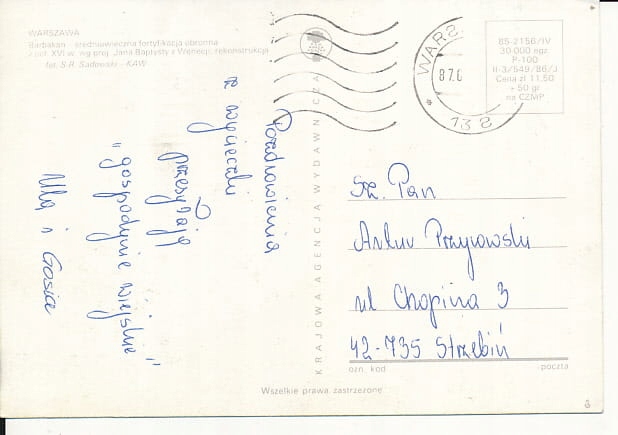 WARSZAWA
Barbakan – średniowieczna fortyfikacja obronna
z poł. XVI w. wg proj. Jana Baptysty z Wenecji, rekonstrukcja
fot. S.R. Sadowski – KAW
85-2156/IV
30 000 egz.
P-100
II-3/549/86/J
Cena zł 11,50
+ 50 gr
na CZMP
WARS
87.0
* 138
Pozdrowienia
z wycieczki
przesyłają
"gospodynie wiejskie"
Ula i Gosia
KRAJOWA AGENCJA WYDAWNICZA
Sz. Pan
Artur Przyrowski
ul Chopina 3
42-735 Strzebiń
ozn. kod
poczta
Wszelkie prawa zastrzeżone